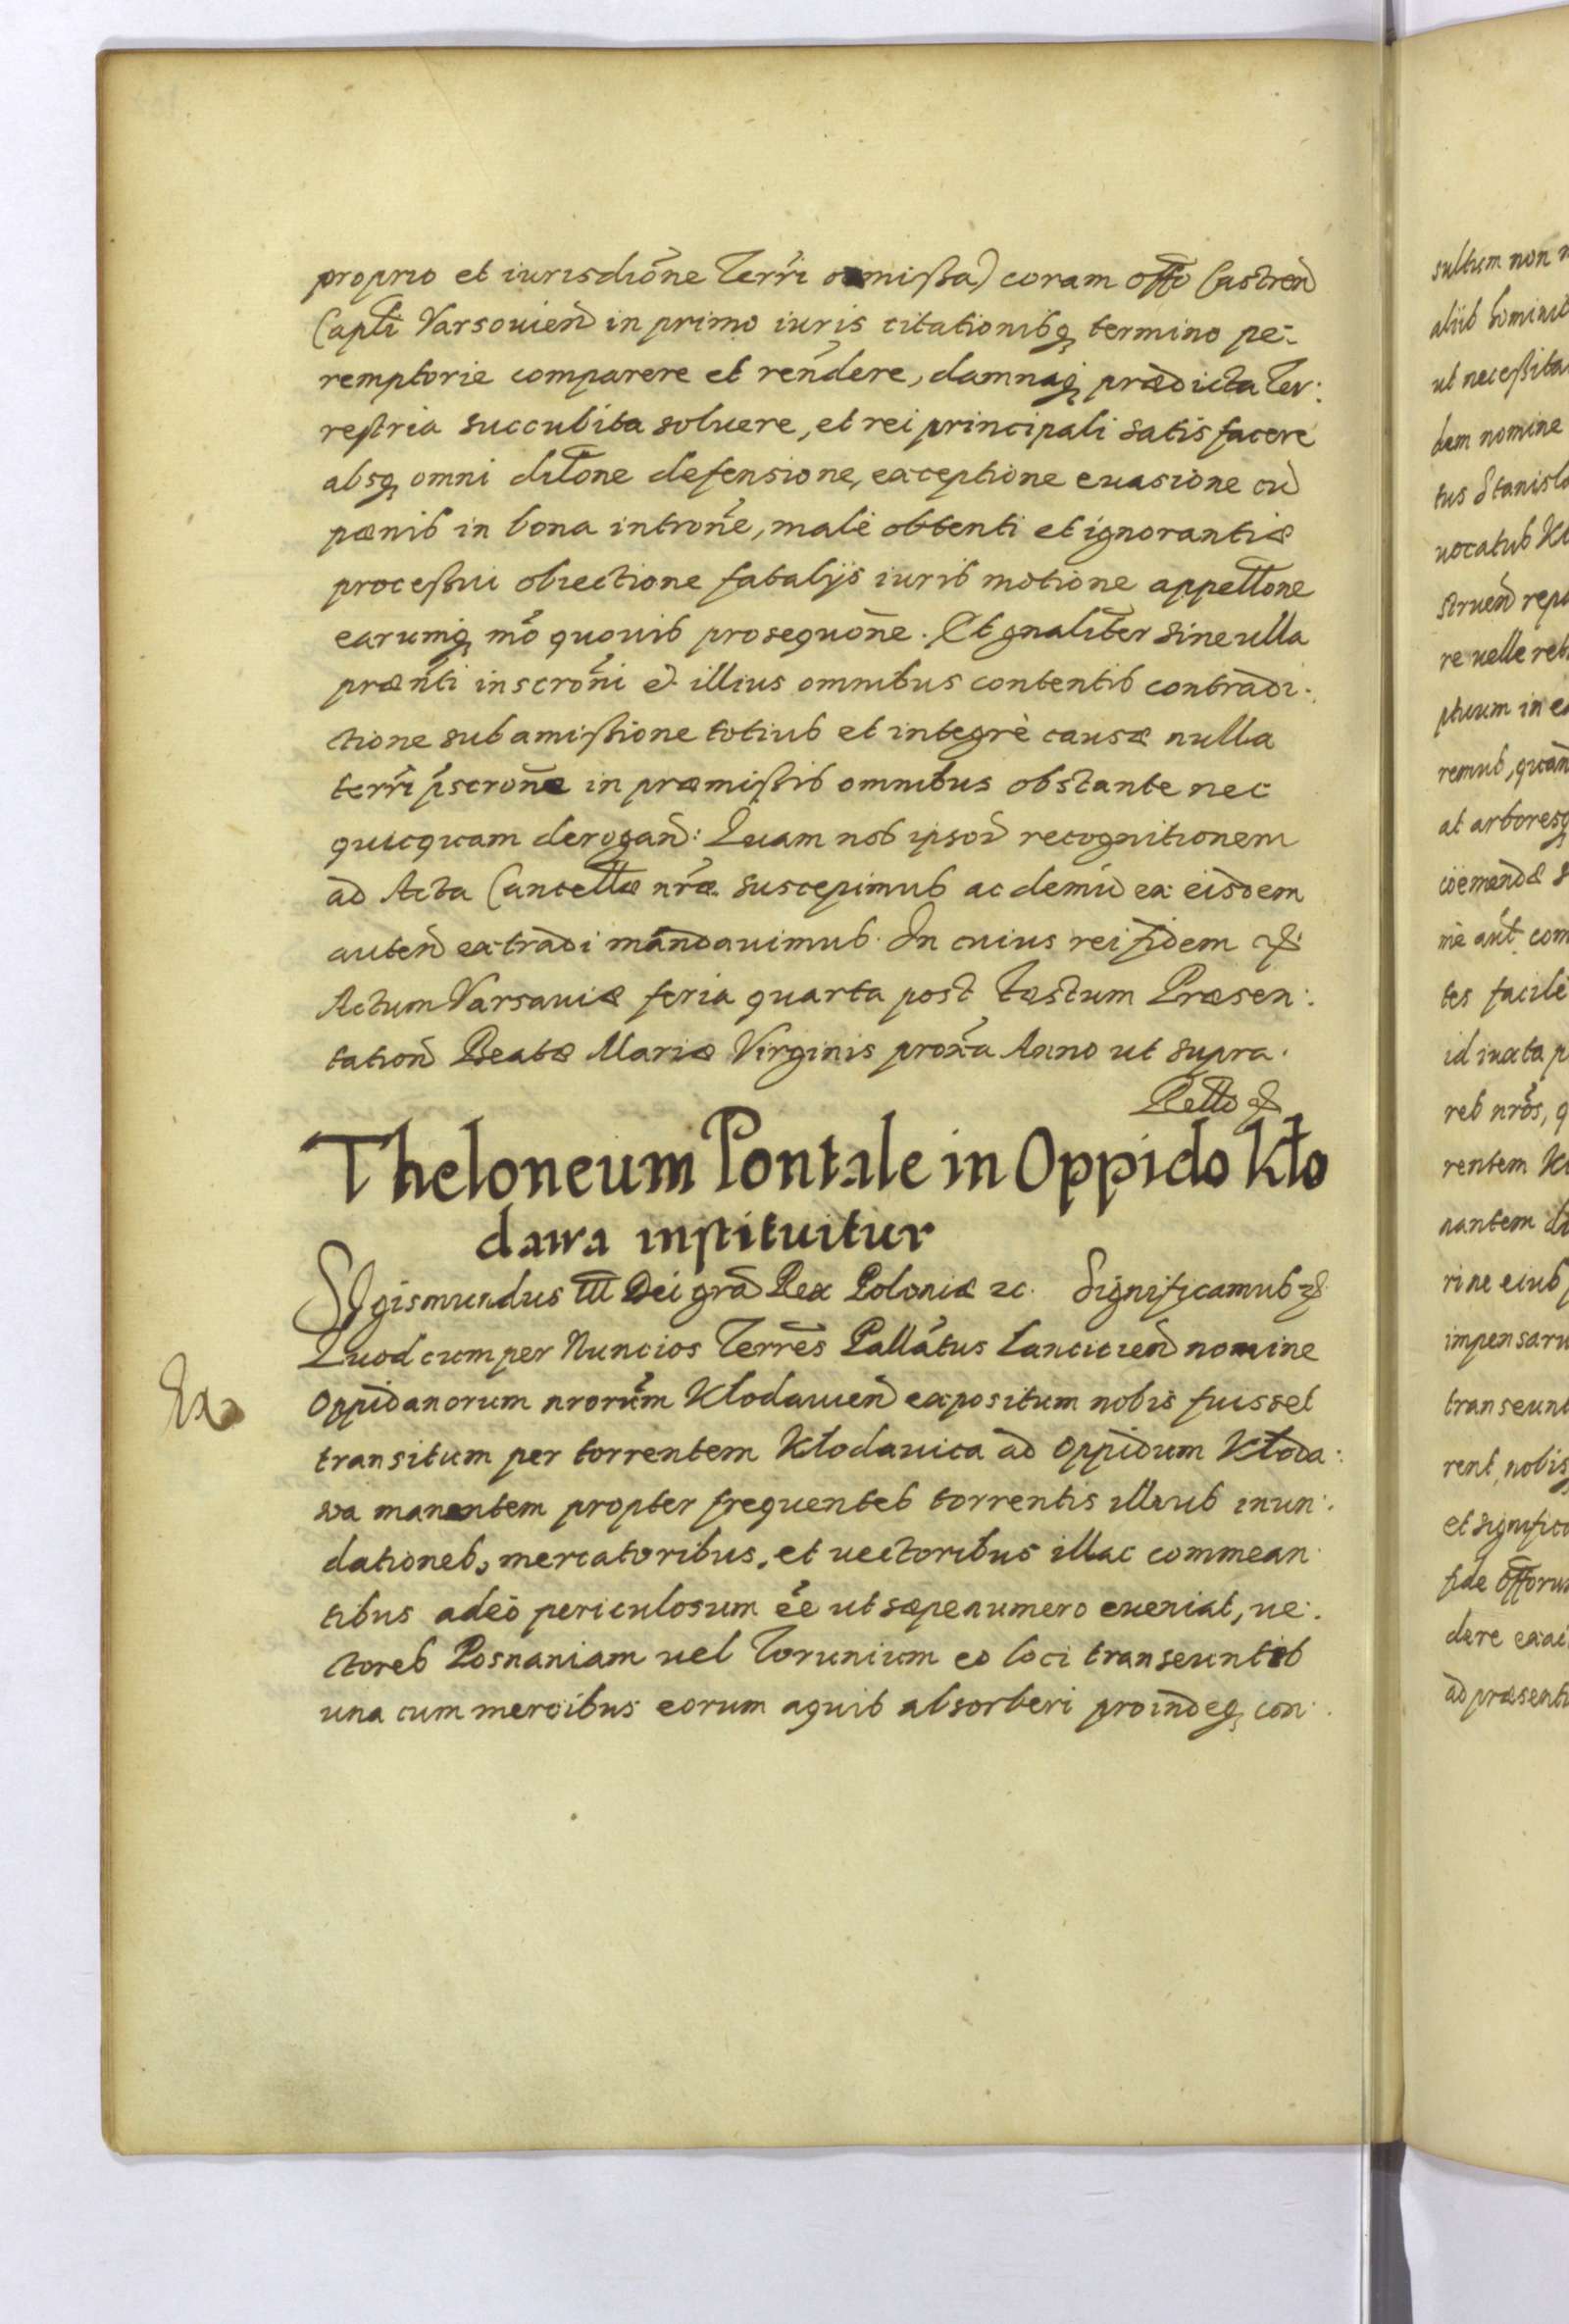 proprio et iurisdiõne Terrĩ omißa) coram offo Castreñ
Capłi Varsouieñ in primo iuris citationibq termino pe-
remptorie comparere et reñdere, damnaq prædicta Ter:
restria succubita soluere, et rei principali satis facere
absq omni diłone defensione, exceptione euasione cũ
pœnis in bona introñe, malè obtenti et ignorantiæ
processui obiectione fatalÿs iuris motione appełłone
earumq mõ quouis prosequõne. Et gnaliter sine ulla
præñti inscroñi et illius omnibus contentis contradi:
ctione sub amißione totius et integrè causæ nulla
terrĩ p̃scroñe in præmißis omnibus obstante nec
quicquam derogañ: Quam nos ipsoȓ recognitionem
ad Acta Cancełłæ nr̃æ suscepimus ac demũ ex eisdem
auteñ extradi mandauimus. In cuius rei fidem &
Actum Varsauiæ feria quarta post festum Præsen:
tationi Beatæ Mariæ Virginis prox̃a Anno ut supra.
Rełło &
Theloneum Pontale in Oppido Kło
dawa instituitur
SIgismundus III Dei grã Rex Poloniæ zc. Significamus &
Quod cum per Nuncios Terrẽs Pallãtus Lancicieñ nomine
Oppidanorum nrorũm Kłodauieñ expositum nobis fuisset
transitum per torrentem Kłodauica ad Oppidum Kłoda:
wa manentem propter frequentes torrentis illius inun:
dationes, mercatoribus, et uectoribus illac commean:
tibus adeò periculosum ẽe ut sæpenumero eueniat, ue:
ctores Posnaniam uel Torunium eo loci transeuntes
una cum mercibus eorum aquis absorberi proindeq con:
Ex
sultum non
aliis hominib
ut neceßita
dam nomine
tus Stanisla
uocatus Kł
strueñ repa
re uelle
ptuum in e
remus, quañ
at arboresq
coemendæ s
nè aũt com
tes facilè
id iuxta p
res nr̃os, q
rentem Kł
nantem
rine eius
impensaru
transeunt
rent nobis
et significa
fide offoru
dere exac
ad præsenti